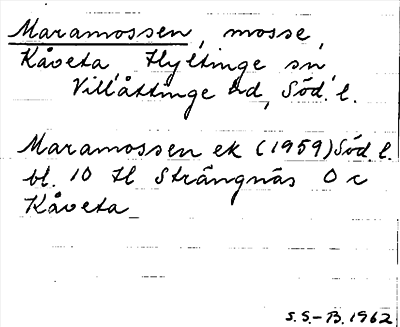 Maramossen, mosse,
Kåveta, Hyltinge sn,
Villåttinge hd, Söd. l.
Maramossen ek (1959) Söd l.
bl. 10 H Strängnäs O c
Kåveta
S.S.-B. 1962